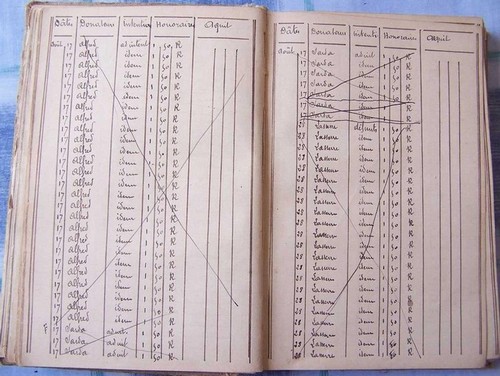 Dâte Donataire Intention Honoraire Aquit
Août 17 Alfred ad intent 1 50 R
17 Alfred idem 1 50 R
17 Alfred idem 1 50 R
17 Alfred idem 1 50 R
17 Alfred idem 1 50 R
17 Alfred idem 1 50 R
17 Alfred idem 1 50 R
17 Alfred idem 1 50 R
17 Alfred idem 1 50 R
17 Alfred idem 1 50 R
17 Alfred idem 1 50 R
17 Alfred idem 1 50 R
17 Alfred idem 1 50 R
17 Alfred idem 1 50 R
17 Alfred idem 1 50 R
17 Alfred idem 1 50 R
17 Alfred idem 1 50 R
17 Alfred idem 1 50 R
17 Alfred idem 1 50 R
17 Alfred idem 1 50 R
17 Alfred idem 1 50 R
17 Alfred idem 1 50 R
17 Alfred idem 1 50 R
17 Alfred idem 1 50 R
17 Alfred idem 1 50 R
17 Alfred idem 1 50 R
17 Alfred idem 1 50 R
17 Sarda ad int 1 50 R
17 Sarda ad int 1 50 R
17 Sarda ad int 1 50 R
Dâte Donataire Intentio Honoraire Aquit
Août 17 Sarda ad int 1 50 R
17 Sarda idem 1 50 R
17 Sarda idem 1 50 R
17 Sarda idem 1 50 R
17 Sarda idem 1 50 R
17 Sarda idem 1 50 R
17 Sarda idem 1 50 R
28 Lassere défunts 1 50 R
28 Lassere idem 1 50 R
28 Lassere idem 1 50 R
28 Lassere idem 1 50 R
28 Lassere idem 1 50 R
28 Lassere idem 1 50 R
28 Lassere idem 1 50 R
28 Lassere idem 1 50 R
28 Lassere idem 1 50 R
28 Lassere idem 1 50 R
28 Lassere idem 1 50 R
28 Lassere idem 1 50 R
28 Lassere idem 1 50 R
28 Lassere idem 1 50 R
28 Lassere idem 1 50 R
28 Lassere idem 1 50 R
28 Lassere idem 1 50 R
28 Lassere idem 1 50 R
28 Lassere idem 1 50 R
28 Lassere idem 1 50 R
28 Lassere idem 1 50 R
28 Lassere idem 1 50 R
28 Lassere idem 1 50 R